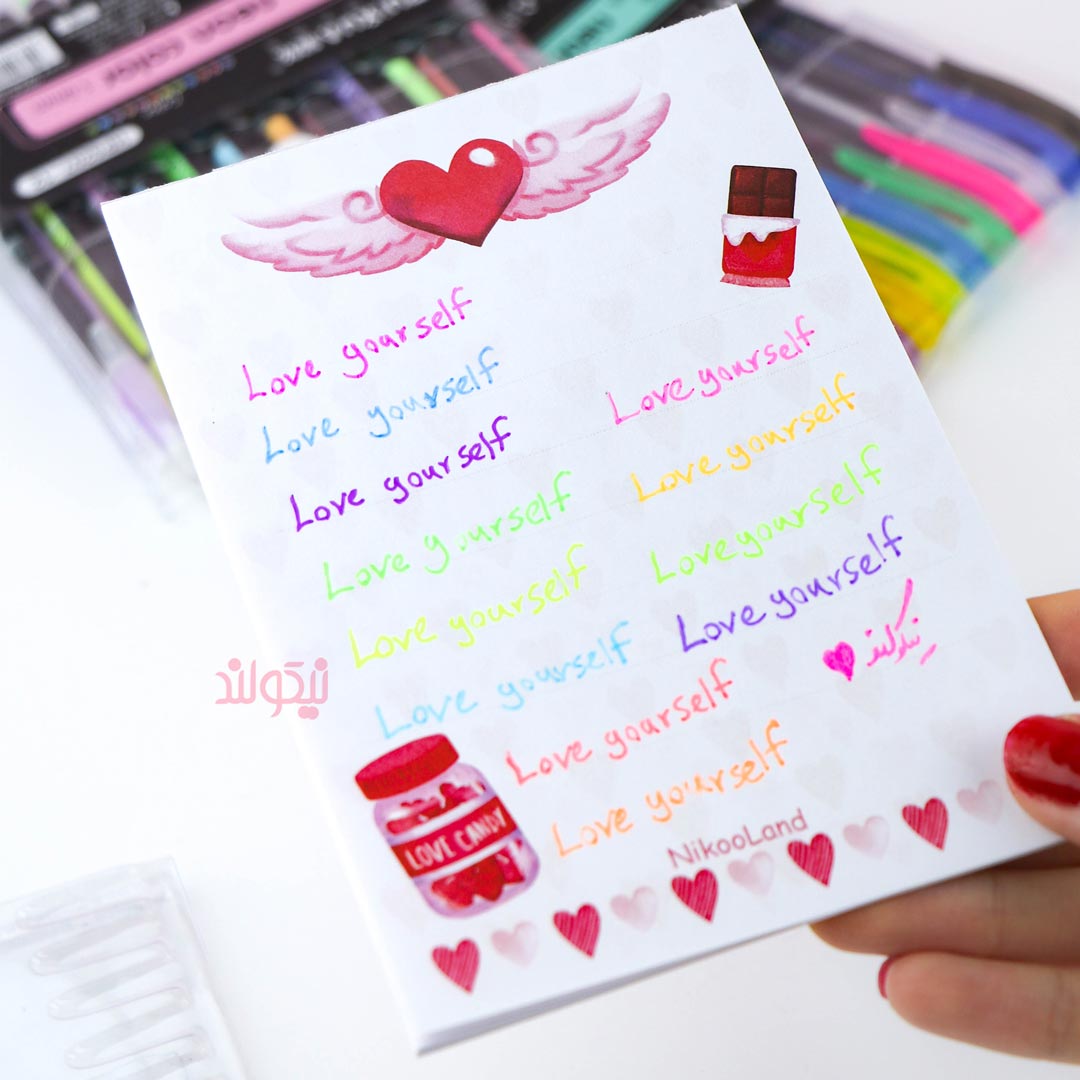 Love yourself
Love yourself
Love yourself
Love yourself
Love yourself
Love yourself
Love yourself
Love yourself
Love yourself
Love yourself
Love yourself
Love yourself
نیکولند
نیکولند
LOVE CANDY
NikooLand